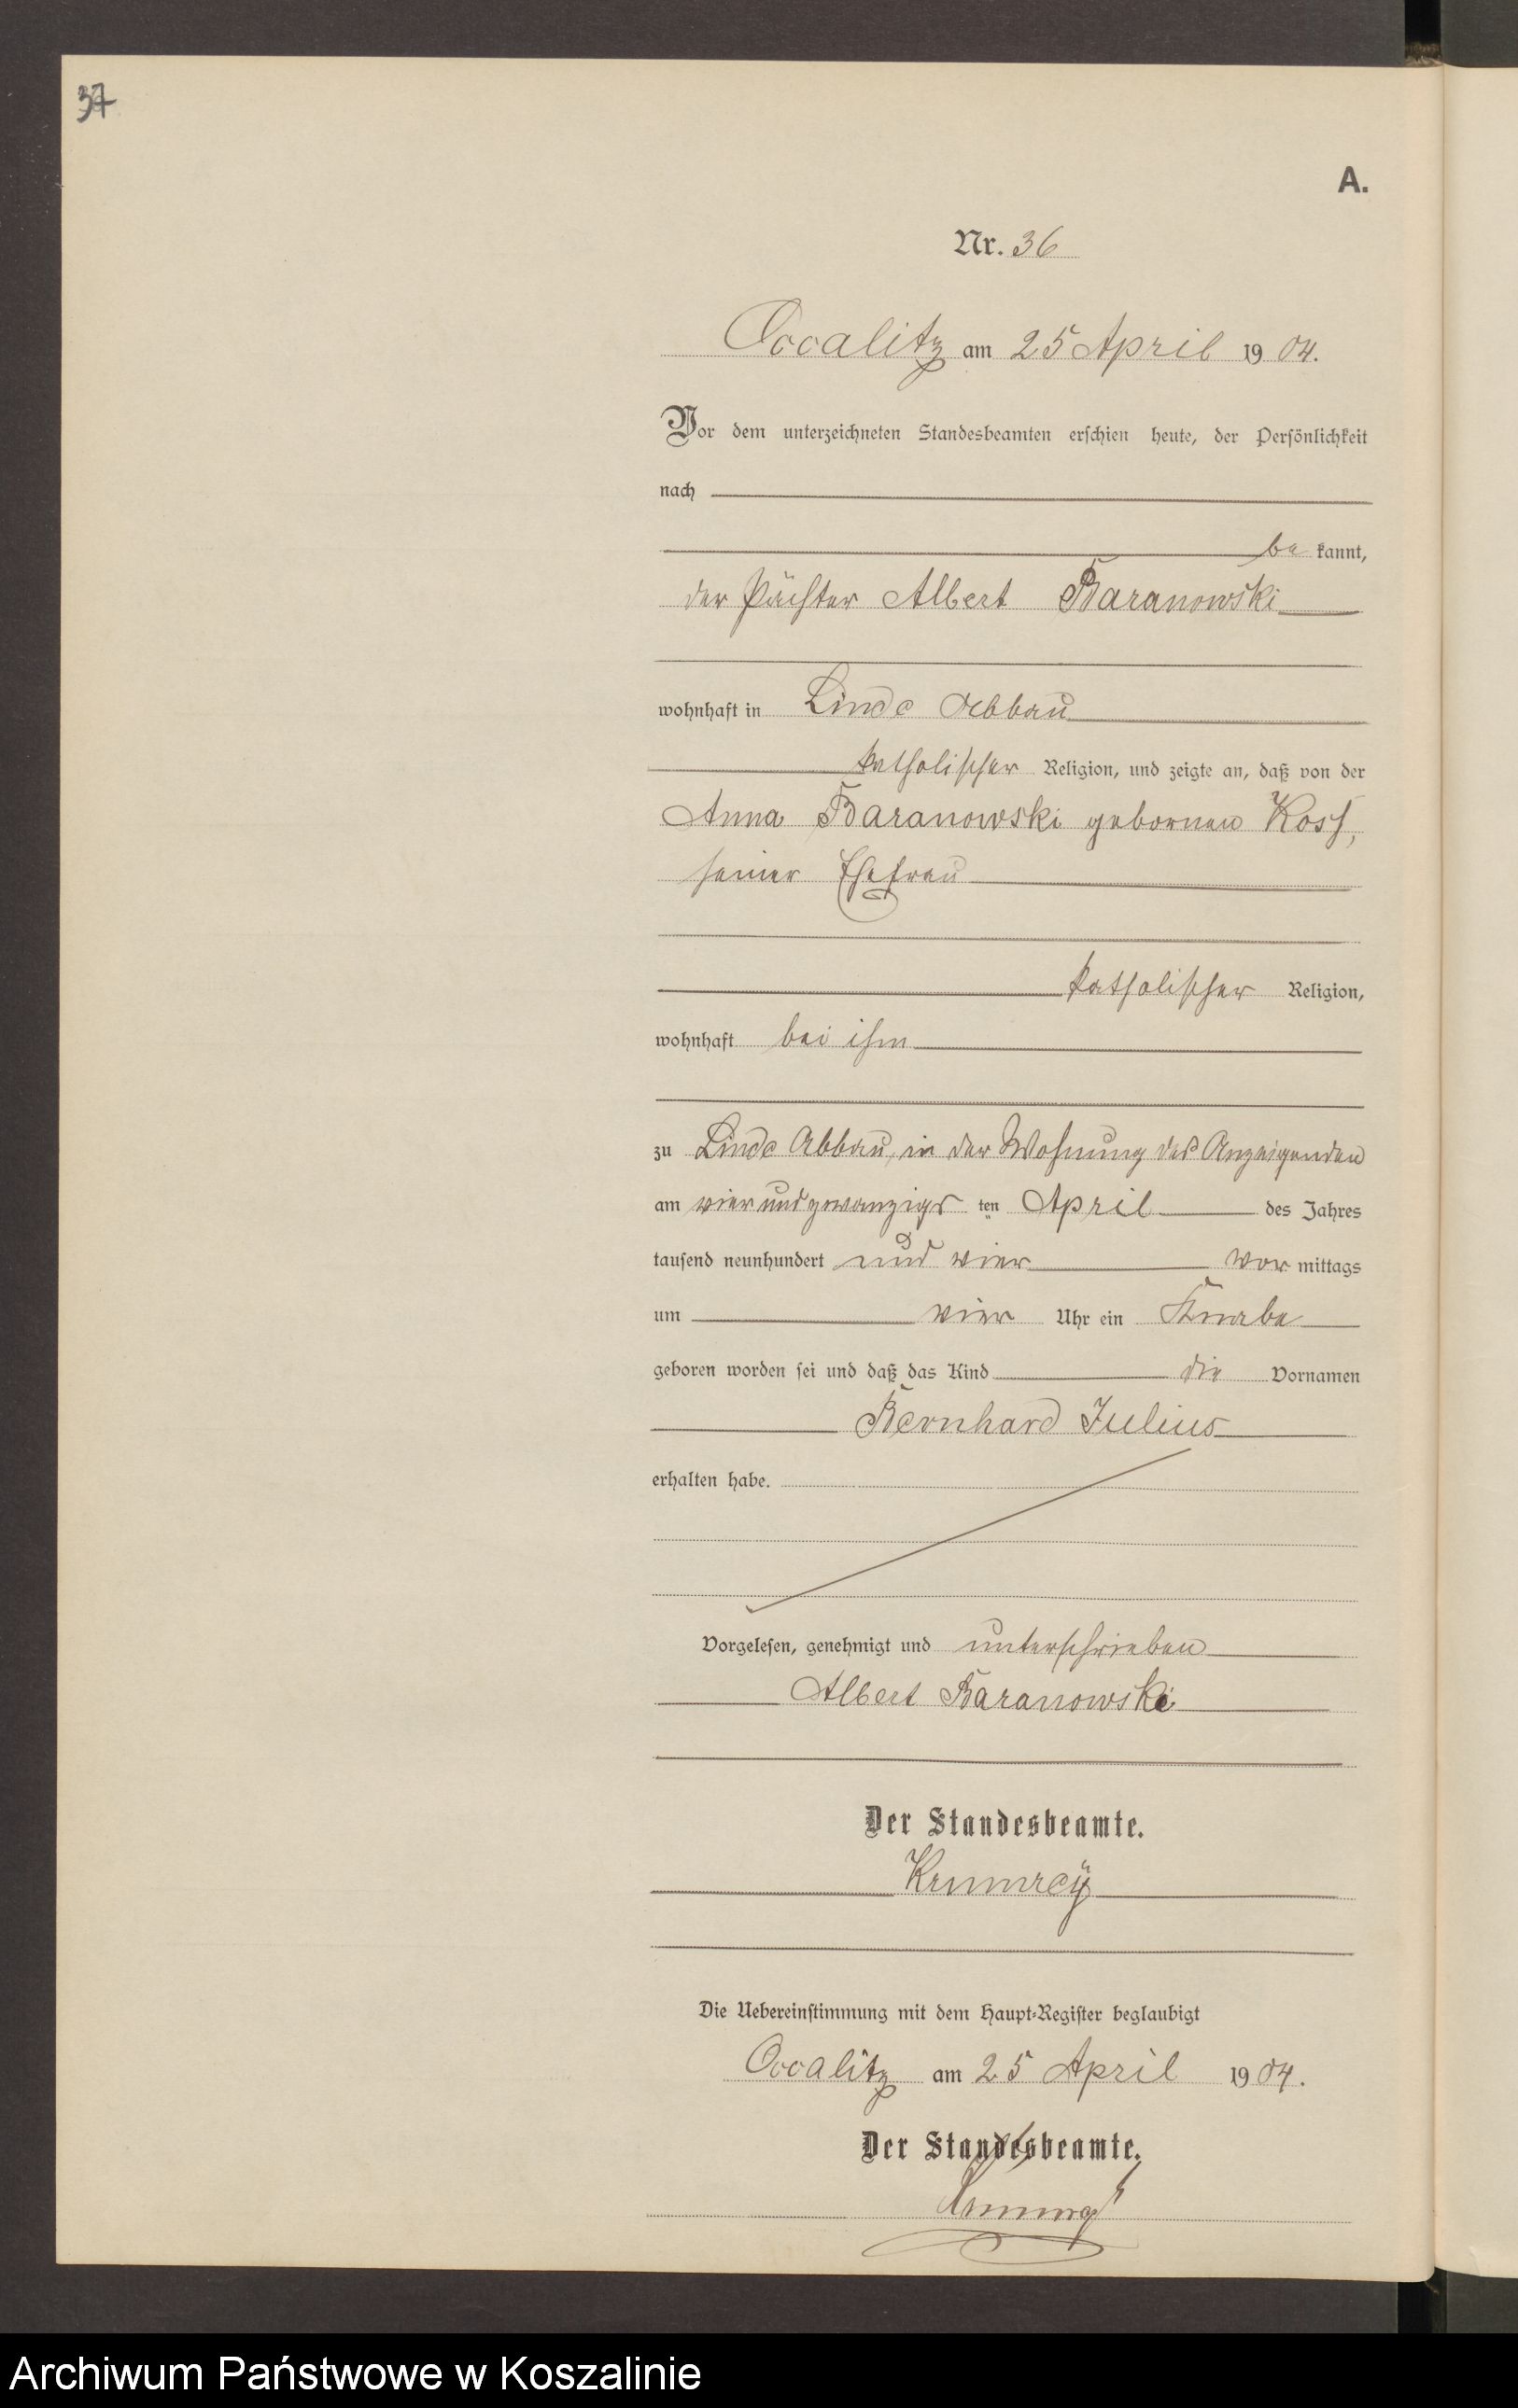 37
A.
Nr. 36
Occalitz am 25 April 1904.
Vor dem unterzeichneten Standesbeamten erschien heute, der Persönlichkeit
nach
be kannt,
der Pächter Albert Baranowski
wohnhaft in Linde Abbau
katholischer Religion, und zeigte an, daß von der
Anna Baranowski gebornen Koss,
seiner Ehefrau
katholischer Religion,
wohnhaft bei ihm
zu Linde Abbau, in der Wohnung des Anzeigenden
am vier und zwanzigs ten April des Jahres
tausend neunhundert und vier vor mittags
um vier Uhr ein Knabe
geboren worden sei und daß das Kind die Vornamen
Bernhard Julius
erhalten habe.
Vorgelesen, genehmigt und unterschrieben
Albert Baranowski
Der Standesbeamte.
Krumrey
Die Uebereinstimmung mit dem Haupt-Register beglaubigt
Occalitz am 25 April 1904.
Der Standesbeamte.
Krumrey
Archiwum Państwowe w Koszalinie